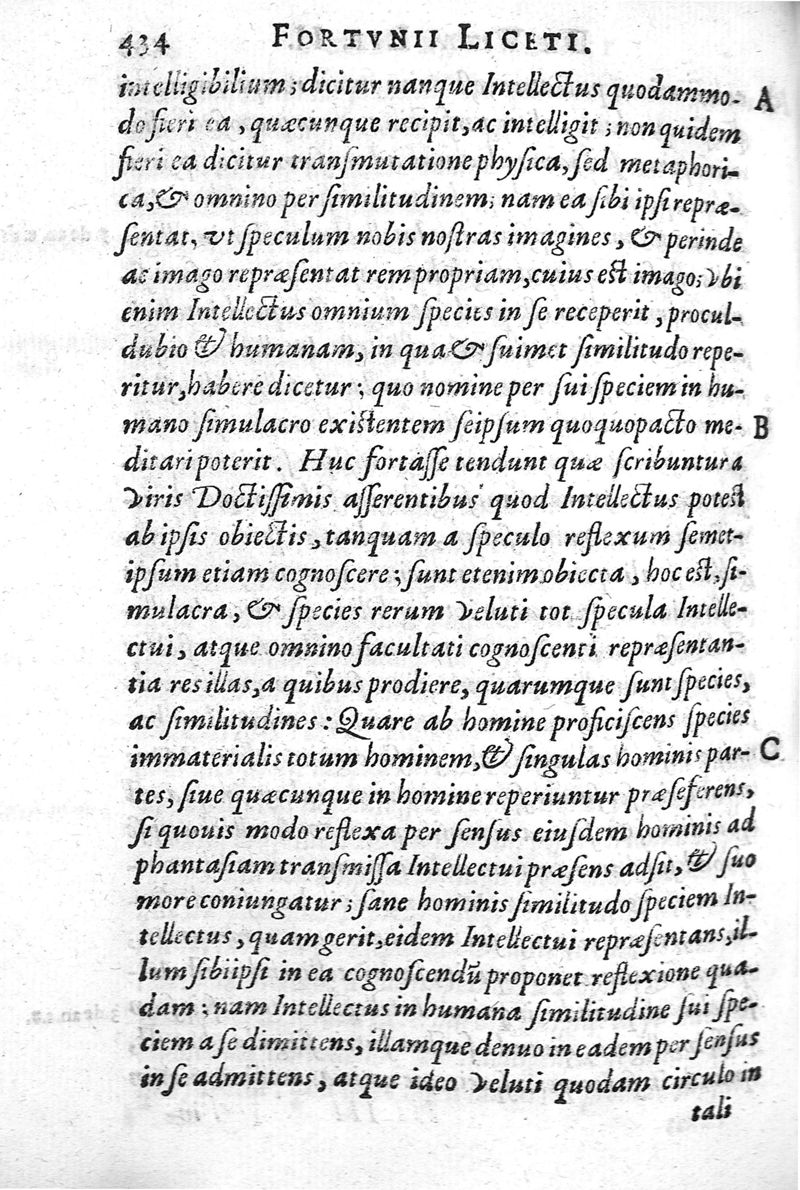 434 FORTVNII LICETI.
intelligibilium; dicitur nanque Intellectus quodammo- A
do fieri ea, quæcunque recipit, ac intelligit; non quidem
fieri ea dicitur transmutatione physica, sed metaphori-
ca, & omnino per similitudinem; nam ea sibi ipsi repræ-
sentat, vt speculum nobis nostras imagines, & perinde
ac imago repræsentat rem propriam, cuius est imago; vbi
enim Intellectus omnium species in se receperit, procul-
dubio & humanam, in qua & suimet similitudo repe-
ritur, habere dicetur; quo nomine per sui speciem in hu-
mano simulacro existentem seipsum quoquopacto me- B
ditari poterit. Huc fortasse tendunt quæ scribuntur a
viris Doctissimis asserentibus quod Intellectus potest
ab ipsis obiectis, tanquam a speculo reflexum semet-
ipsum etiam cognoscere; sunt etenim obiecta, hoc est, si-
mulacra, & species rerum veluti tot specula Intelle-
ctui, atque omnino facultati cognoscenti repræsentan-
tia res illas, a quibus prodiere, quarumque sunt species,
ac similitudines: Quare ab homine proficiscens species
immaterialis totum hominem, & singulas hominis par- C
tes, siue quæcunque in homine reperiuntur præseferens,
si quouis modo reflexa per sensus eiusdem hominis ad
phantasiam transmissa Intellectui præsens adsit, & suo
more coniungatur; sane hominis similitudo speciem In-
tellectus, quam gerit, eidem Intellectui repræsentans, il-
lum sibiipsi in ea cognoscendũ proponet reflexione qua-
dam; nam Intellectus in humana similitudine sui spe-
ciem a se dimittens, illamque denuo in eadem per sensus
in se admittens, atque ideo veluti quodam circulo in
tali